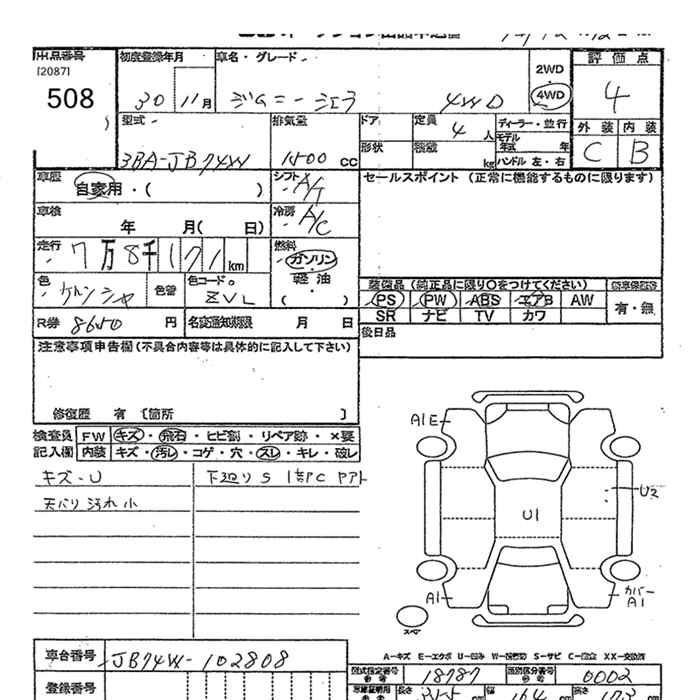 出品番号 初度登録年月 車名・グレード
[2087]
508
30 11月 ジムニーシエラ 4WD
2WD
4WD
評価点
4
外装 内装
C B
型式 排気量 ドア 定員 4人 ディーラー・並行
モデル年式 年
3BA-JB74W 1500 cc 形状 積載 kg ハンドル 左・右
車歴 自家用・( ) シフト A/T セールスポイント (正常に機能するものに限ります)
車検 年 月( 日) 冷房 A/C
走行 7万8千171km 燃料 ガソリン
軽油
( )
色 色替 色コード ZVL
装備品 (純正品に限り○をつけてください)
PS PW ABS エアB AW 有・無
SR ナビ TV カワ
R券 8650 円 名変通知期限 月 日
後日品
注意事項申告欄(不具合内容等は具体的に記入して下さい)
修復歴 有 [箇所 ]
検査員 FW キズ・飛石・ヒビ割・リペア跡・×要
記入欄 内装 キズ・汚レ・コゲ・穴・スレ・キレ・破レ
キズ・U 下廻りS
天バリ汚れ小
A1E
U2
U1
A1 カバーA1
スペア
A-キズ E-エクボ U-凹み W-補修跡 S-サビ C-腐食 XX-交換済
車台番号 JB74W-102808
型式指定番号 18787 類別区分番号 0002
登録番号 長さ 幅 高さ